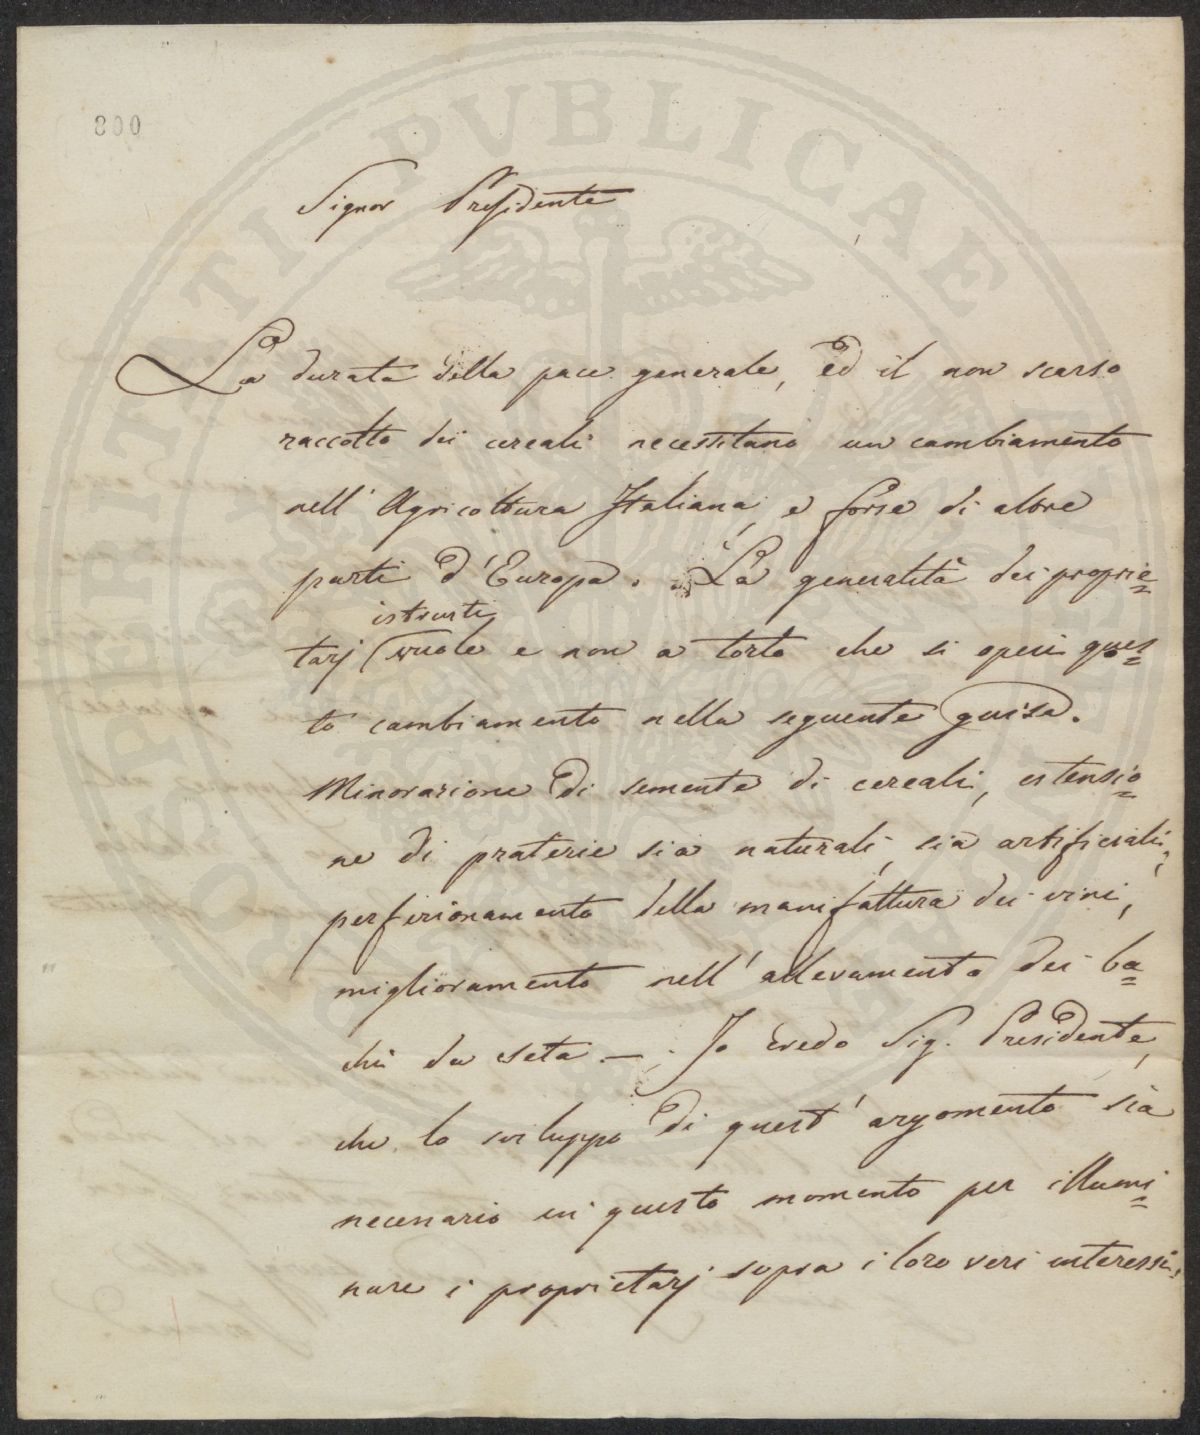 800
Signor Presidente
La durata della pace generale, ed il non scarso
raccolto dei cereali necessitano un cambiamento
nell' Agricoltura Italiana, e forse di altre
parti d'Europa. La generalità dei proprie=
istruiti
tarj vuole e non a torto che si operi ques=
to cambiamento nella seguente guisa.
Minorazione di semente di cereali, estensio=
ne di praterie sia naturali, sia artificiali,
perfezionamento della manifattura dei vini,
miglioramento nell' allevamento dei ba=
chi da seta —. Io credo Sig. Presidente,
che lo sviluppo di quest' argomento sia
necessario in questo momento per illumi=
nare i proprietarj sopra i loro veri interessi,
PROSPERITATI PUBLICAE